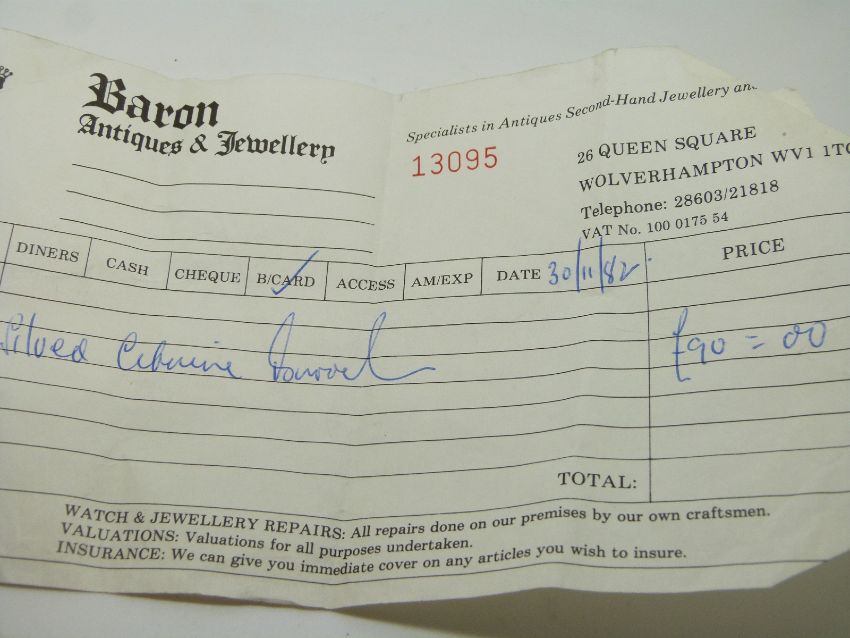 Baron
Antiques & Jewellery
Specialists in Antiques Second-Hand Jewellery
13095
26 QUEEN SQUARE
WOLVERHAMPTON WV1
Telephone: 28603/21818
VAT No. 100 0175 54
DINERS CASH CHEQUE B/CARD ACCESS AM/EXP DATE 30/11/82 PRICE
£90 = 00
TOTAL:
WATCH & JEWELLERY REPAIRS: All repairs done on our premises by our own craftsmen.
VALUATIONS: Valuations for all purposes undertaken.
INSURANCE: We can give you immediate cover on any articles you wish to insure.